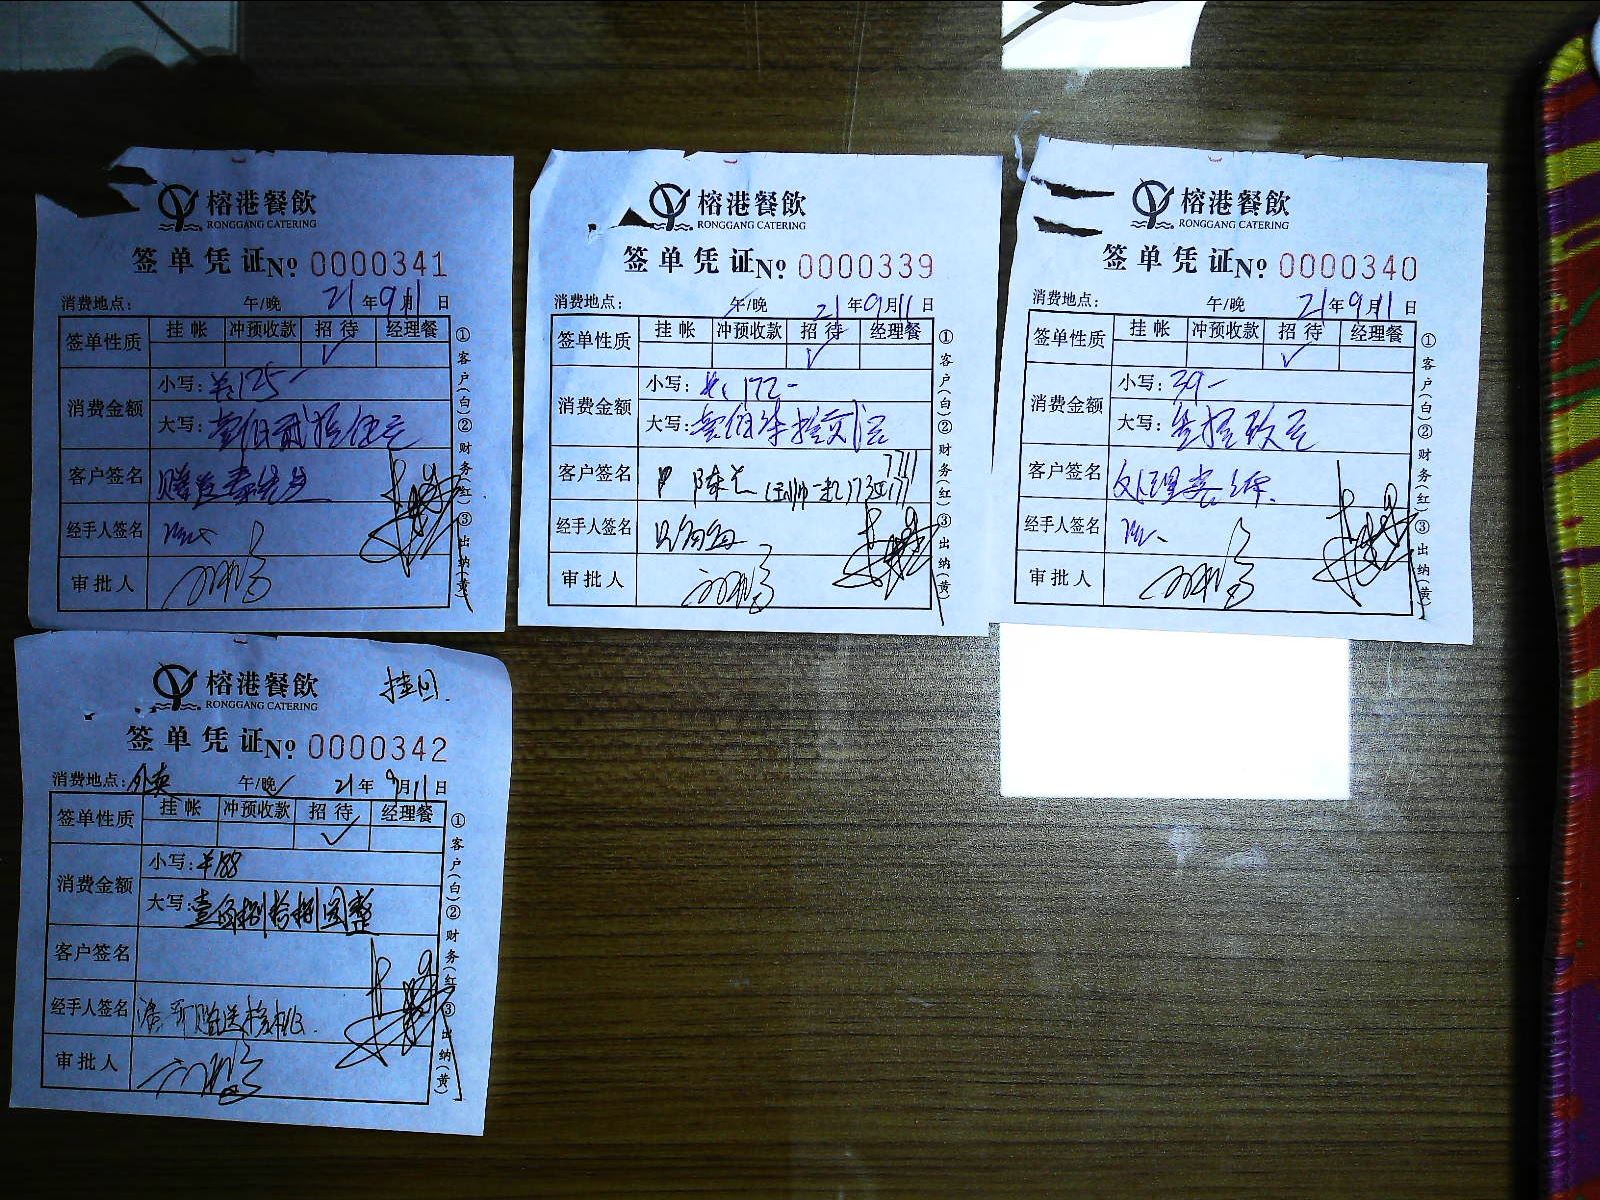 榕港餐飲
RONGGANG CATERING
签单凭证 № 0000341
消费地点: 午/晚 21年9月11日
签单性质 挂帐 冲预收款 招待 经理餐
✓
消费金额
小写: ¥:125-
大写: 壹佰贰拾伍元
客户签名
经手人签名
审批人
①客户(白)②财务(红)③出纳(黄)
榕港餐飲
RONGGANG CATERING
签单凭证 № 0000339
消费地点: 午/晚 21年9月11日
签单性质 挂帐 冲预收款 招待 经理餐
✓
消费金额
小写: ¥:172-
大写: 壹佰柒拾贰元
客户签名
经手人签名
审批人
①客户(白)②财务(红)③出纳(黄)
榕港餐飲
RONGGANG CATERING
签单凭证 № 0000340
消费地点: 午/晚 21年9月11日
签单性质 挂帐 冲预收款 招待 经理餐
✓
消费金额
小写: 39-
大写: 叁拾玖元
客户签名
经手人签名
审批人
①客户(白)②财务(红)③出纳(黄)
榕港餐飲
RONGGANG CATERING
签单凭证 № 0000342
消费地点: 外卖 午/晚✓ 21年9月11日
签单性质 挂帐 冲预收款 招待 经理餐
✓
消费金额
小写: ¥188
大写: 壹佰捌拾捌圆整
客户签名
经手人签名
审批人
①客户(白)②财务(红)③出纳(黄)